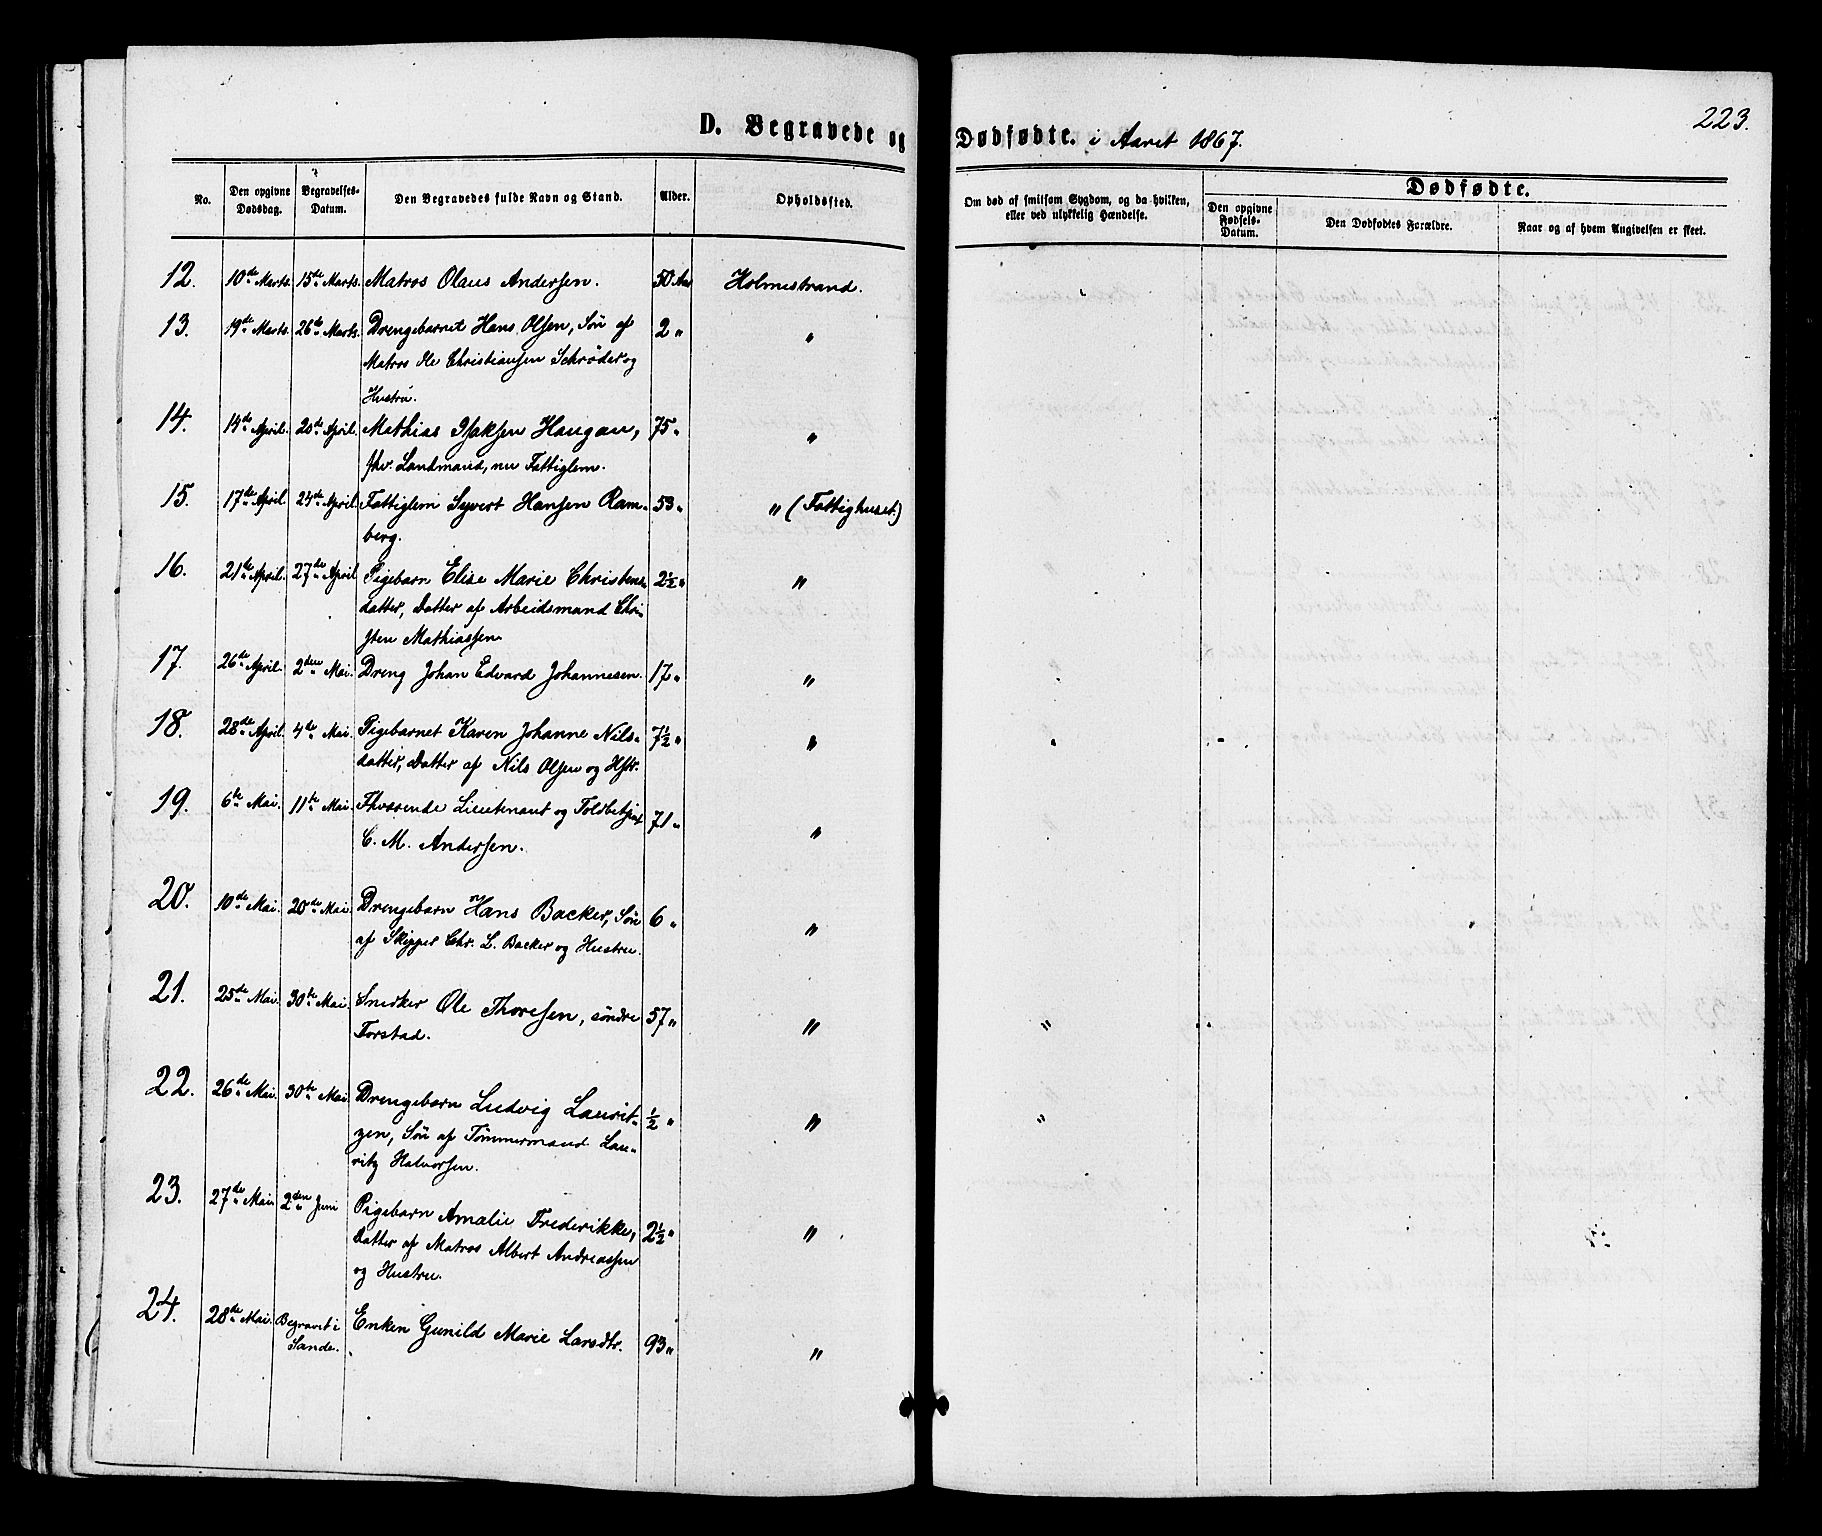 223.
D. Begravede og Dødfødte. i Aaret 1867.
No. Den opgivne Dødsdag. Begravelses-Datum. Den Begravedes fulde Navn og Stand. Alder. Opholdssted. Om død af smitsom Sygdom, og da hvilken, eller ved ulykkelig Hændelse. Dødfødte.
Den opgivne Fødsels-Datum. Den Dødfødtes Forældre. Naar og af hvem Angivelsen er skeet.
12. 10de Marts. 15de Marts. Matros Olaus Andersen. 50 Aar Holmestrand.
13. 19de Marts. 26de Marts. Drengebarnet Hans Olsen, Søn af 2 " "
Matros Ole Christiansen Schrøder og
Hustru.
14. 14de April. 20de April. Mathias Isaksen Haugan, 75 " "
fhv. Landmand, nu Fattiglem.
15. 17de April 24de April. Fattiglem Syvert Hansen Ram- 53 " " (Fattighuset.)
berg.
16. 21de April. 27de April Pigebarn Elise Marie Christens- 2½ " "
datter, Datter af Arbeidsmand Chri-
sten Mathiassen
17. 26de April. 2den Mai. Dreng Johan Edvard Johannesen. 17 " "
18. 28de April. 4de Mai. Pigebarnet Karen Johanne Nils- 7½ " "
datter, Datter af Nils Olsen og Hstr.
19. 6te Mai. 11te Mai. Fhværende Lieutenant og Toldbetjent 71 " "
C. M. Andersen.
20. 10de Mai. 20de Mai. Drengebarn Hans Backer, Søn 6 " "
af Skipper Chr. L. Backer og Hustru.
21. 25de Mai. 30te Mai. Snedker Ole Thoresen, søndre 57 " " "
Forstad.
22. 26de Mai. 30te Mai Drengebarn Ludvig Laurit- ½ " " "
zen, Søn af Tømmermand Lau-
ritz Halvorsen.
23. 27de Mai. 2den Juni Pigebarn Amalie Frederikke, 2½ " "
Datter af Matros Albert Andreassen
og Hustru.
24. 28de Mai. Begravet i Enken Gunild Marie Larsdtr. 93 " "
Sande.